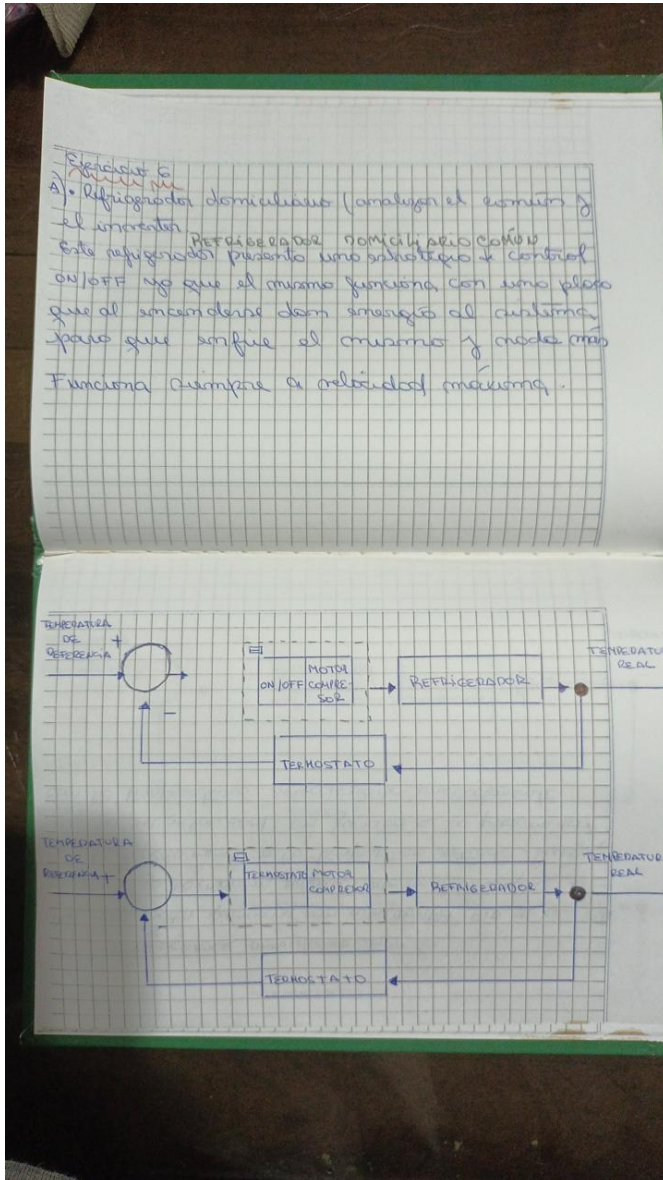 Ejercicio 6
A). Refrigerador domiciliario (analizar el común y
el inverter
REFRIGERADOR DOMICILIARIO COMÚN
Este refrigerador presenta una estrategia + control
ON/OFF ya que el mismo funciona con una placa
que al encenderse dan energía al sistema
para que enfríe el mismo y nada más
Funciona siempre a velocidad máxima.
TEMPERATURA
DE
REFERENCIA
+
-
ON/OFF
MOTOR
COMPRE-
SOR
REFRIGERADOR
TEMPERATU
REAL
TERMOSTATO
TEMPERATURA
DE
REFERENCIA +
-
TERMOSTATO
MOTOR
COMPRESOR
REFRIGERADOR
TEMPERATU
REAL
TERMOSTATO